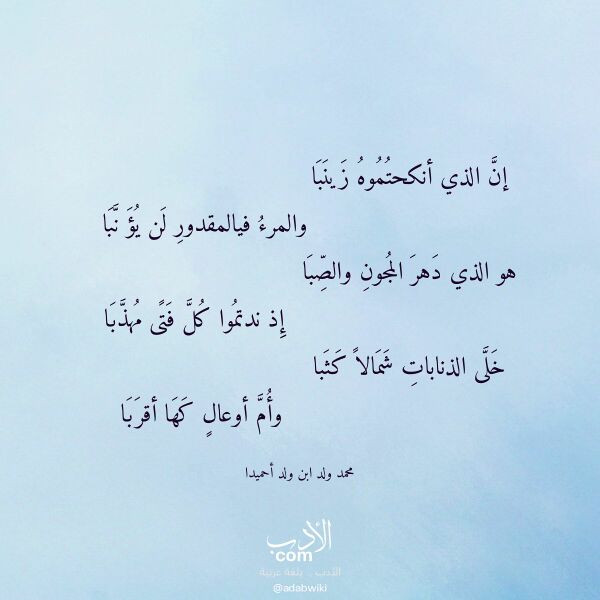 إنَّ الذي أنكحتُمُوهُ زَينَبَا
والمرءُ فيالمقدورِ لَن يُؤَ نَّبَا
هو الذي دَهرَ المجُونِ والصِّبَا
إِذ ندتمُوا كُلَّ فَتًى مُهذَّبَا
خَلَّى الذناباتِ شَمَالاً كَثَبا
وأُمَّ أوعالٍ كَهَا أقرَبَا
محمد ولد ابن ولد أحميدا
الأدب
com
الأدب .. بلغة عربية
@adabwiki